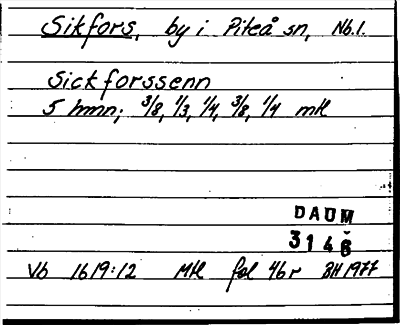 Sikfors, by i Piteå sn, Nb.l.
Sickforssenn
5 hmn; 3/8, 1/3, 1/4, 3/8, 1/4 mtl
DAUM
3146
Vb 1619:12 Mtl fol 46r BH 1977